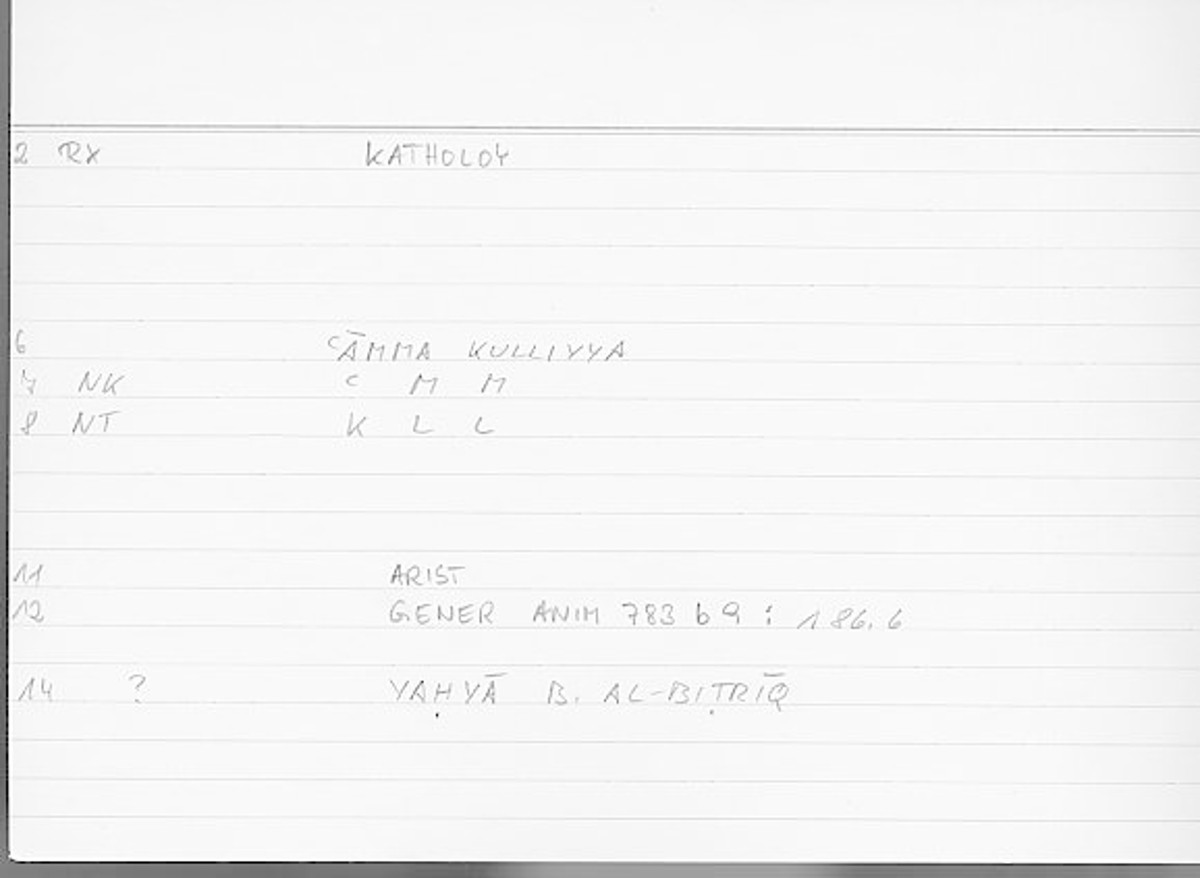 2 RX KATHOLOY
6 ʿĀMMA KULLIYYA
7 NK ʿ M M
8 NT K L L
11 ARIST
12 GENER ANIM 783 b 9 : 186.6
14 ? YAḤYĀ B. AL-BIṬRĪQ